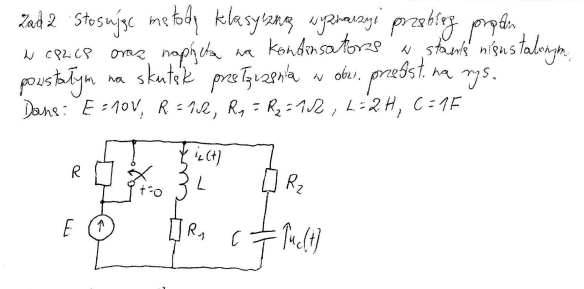 Zad 2 Stosując metodę klasyczną wyznaczyć przebieg prądu
w cewce oraz napięcia na kondensatorze w stanie nieustalonym
powstałym na skutek przełączenia w obw. przedst. na rys.
Dane: E = 10V, R = 1Ω, R1 = R2 = 1Ω, L = 2H, C = 1F
iL(t)
R
t=0
L
R2
E
R1
C
uc(t)